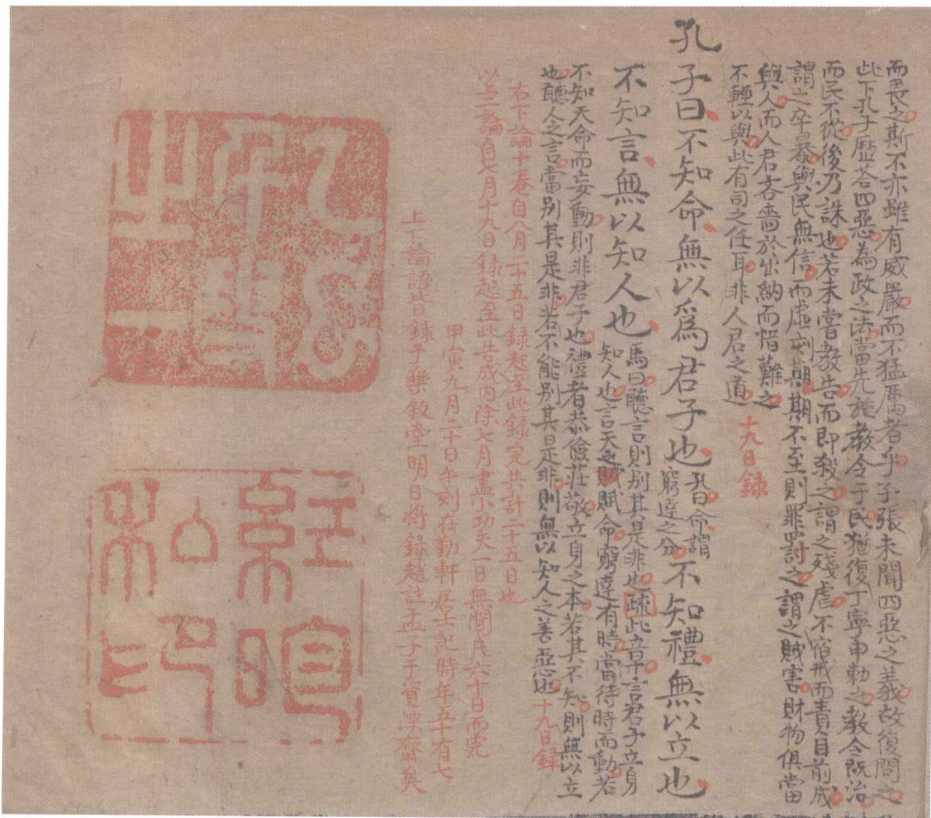 而畏之斯不亦雖有威嚴而不猛厲者乎子張未聞四惡之義故復問之
此下孔子歷荅四惡為政之法當先施教令于民猶復丁寧申勑之教令既治
而民不從後乃誅也若未嘗教告而即殺之謂之殘虐不宿戒而責目前成
謂之卒暴與民無信而虛刻期期不至則罪罰之謂之賊害財物俱當
與人而人君吝嗇於出納而惜難之
不輕以與此有司之任耳非人君之道 十九日錄
孔子曰不知命無以爲君子也
命謂
窮達之分
不知禮無以立也
不知言無以知人也
馬曰聽言則別其是非也疏此章言君子立身
知人也言天之賦命窮達有時當待時而動若
不知天命而妄動則非君子也禮者恭儉莊敬立身之本若其不知則無以立
也聽人之言當別其是非若不能別其是非則無以知人之善惡也 十九日錄
右下論十卷自八月二十五日錄起至此錄完共計二十五日也
以上二論自七月十九日錄起至此告成內除七月盡小功欠一日無間凡六十日而完
甲寅九月二十日午刻在勤軒居士記時年五十有七
上下論語皆錄于樂敘堂明日將錄趙註孟子于資深齋矣
私印